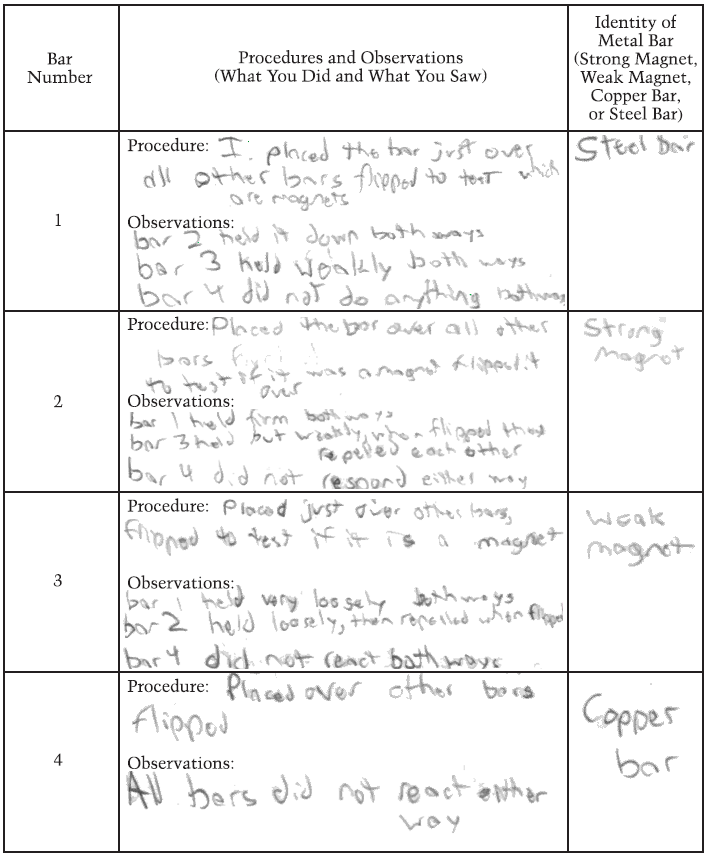 Bar
Number
Procedures and Observations
(What You Did and What You Saw)
Identity of
Metal Bar
(Strong Magnet,
Weak Magnet,
Copper Bar,
or Steel Bar)
1
Procedure: I placed the bar just over
all other bars flipped to test which
are magnets
Observations:
bar 2 held it down both ways
bar 3 held weakly both ways
bar 4 did not do anything bothways
Steel bar
2
Procedure: Placed the bar over all other
bars
to test if it was a magnet flipped it
over
Observations:
bar 1 held firm both ways
bar 3 held but weakly, when flipped they
repelled each other
bar 4 did not respond either way
Strong
magnet
3
Procedure: Placed just over other bars,
flipped to test if it is a magnet
Observations:
bar 1 held very loosely both ways
bar 2 held loosely, then repelled when flipped
bar 4 did not react both ways
Weak
magnet
4
Procedure: Placed over other bars
flipped
Observations:
All bars did not react either
way
Copper
bar